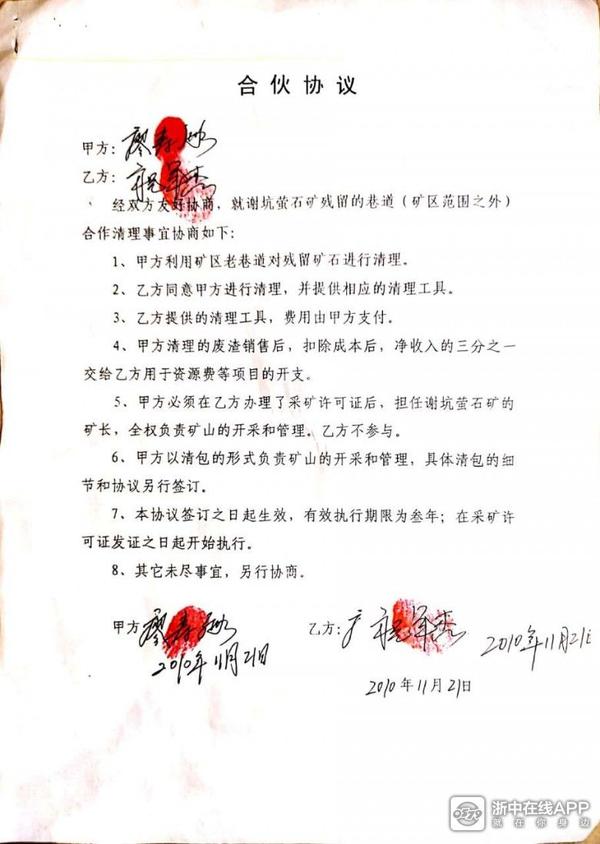 合伙协议
甲方：廖寿
乙方：
经双方友好协商，就谢坑萤石矿残留的巷道（矿区范围之外）
合作清理事宜协商如下：
1、甲方利用矿区老巷道对残留矿石进行清理。
2、乙方同意甲方进行清理，并提供相应的清理工具。
3、乙方提供的清理工具，费用由甲方支付。
4、甲方清理的废渣销售后，扣除成本后，净收入的三分之一
交给乙方用于资源费等项目的开支。
5、甲方必须在乙方办理了采矿许可证后，担任谢坑萤石矿的
矿长，全权负责矿山的开采和管理。乙方不参与。
6、甲方以清包的形式负责矿山的开采和管理，具体清包的细
节和协议另行签订。
7、本协议签订之日起生效，有效执行期限为叁年；在采矿许
可证发证之日起开始执行。
8、其它未尽事宜，另行协商。
甲方 廖寿
乙方：
2010年11月21日
2010年11月21日
2010年11月21日
浙中在线APP
就在你身边